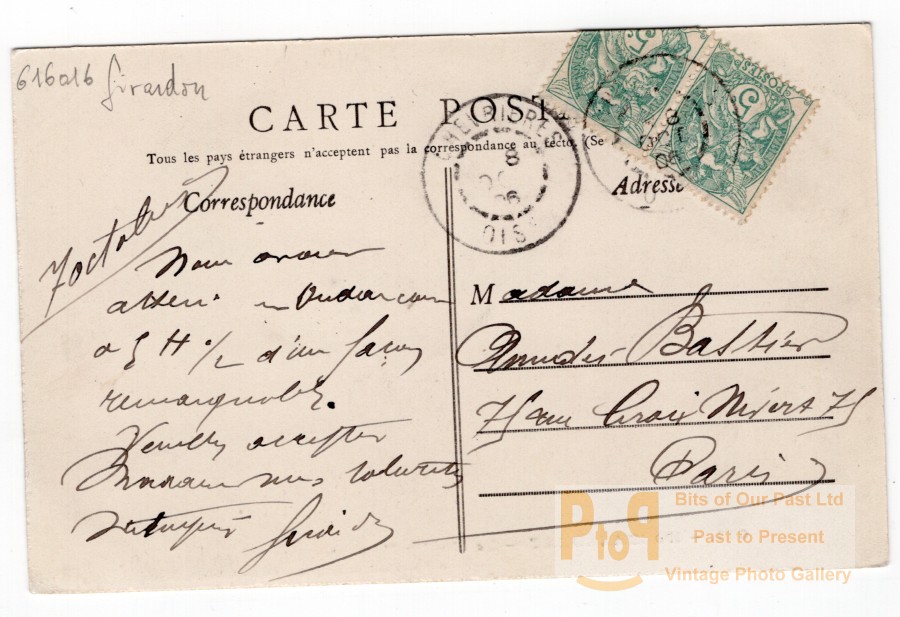 616016 Girardon
CARTE POST
Tous les pays étrangers n'acceptent pas la correspondance au recto. (Se
Correspondance
Adresse
CHEVRIÈRES
8
06
OISE
5
POSTES
5
8
06
7 octobre
Nous avons
atterri
a 5 H 1/2 d'une façon
remarquable.
Veuillez accepter
Madame mes salutations
Girardon
Madame
Bastier
75 rue Croix Nivert 75
Paris
PtoP
Bits of Our Past Ltd
Past to Present
Vintage Photo Gallery